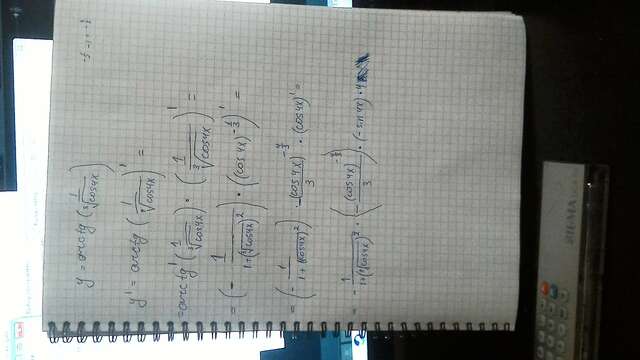 y = arctg (1/∛cos4x)
-1/3 - 1 = -4/3
y' = arctg (1/∛cos4x)' =
= arctg' (1/∛cos4x) · (1/∛cos4x)' =
= (- 1/(1+(∛cos4x)²)) · ((cos4x)^(-1/3))' =
= (- 1/(1+(cos4x)²)) · -(cos4x)^(-4/3)/3 · (cos4x)' =
= - 1/(1+(∛cos4x)²) · (-(cos4x)^(-4/3)/3) · (-sin4x) · 4
SIGMA